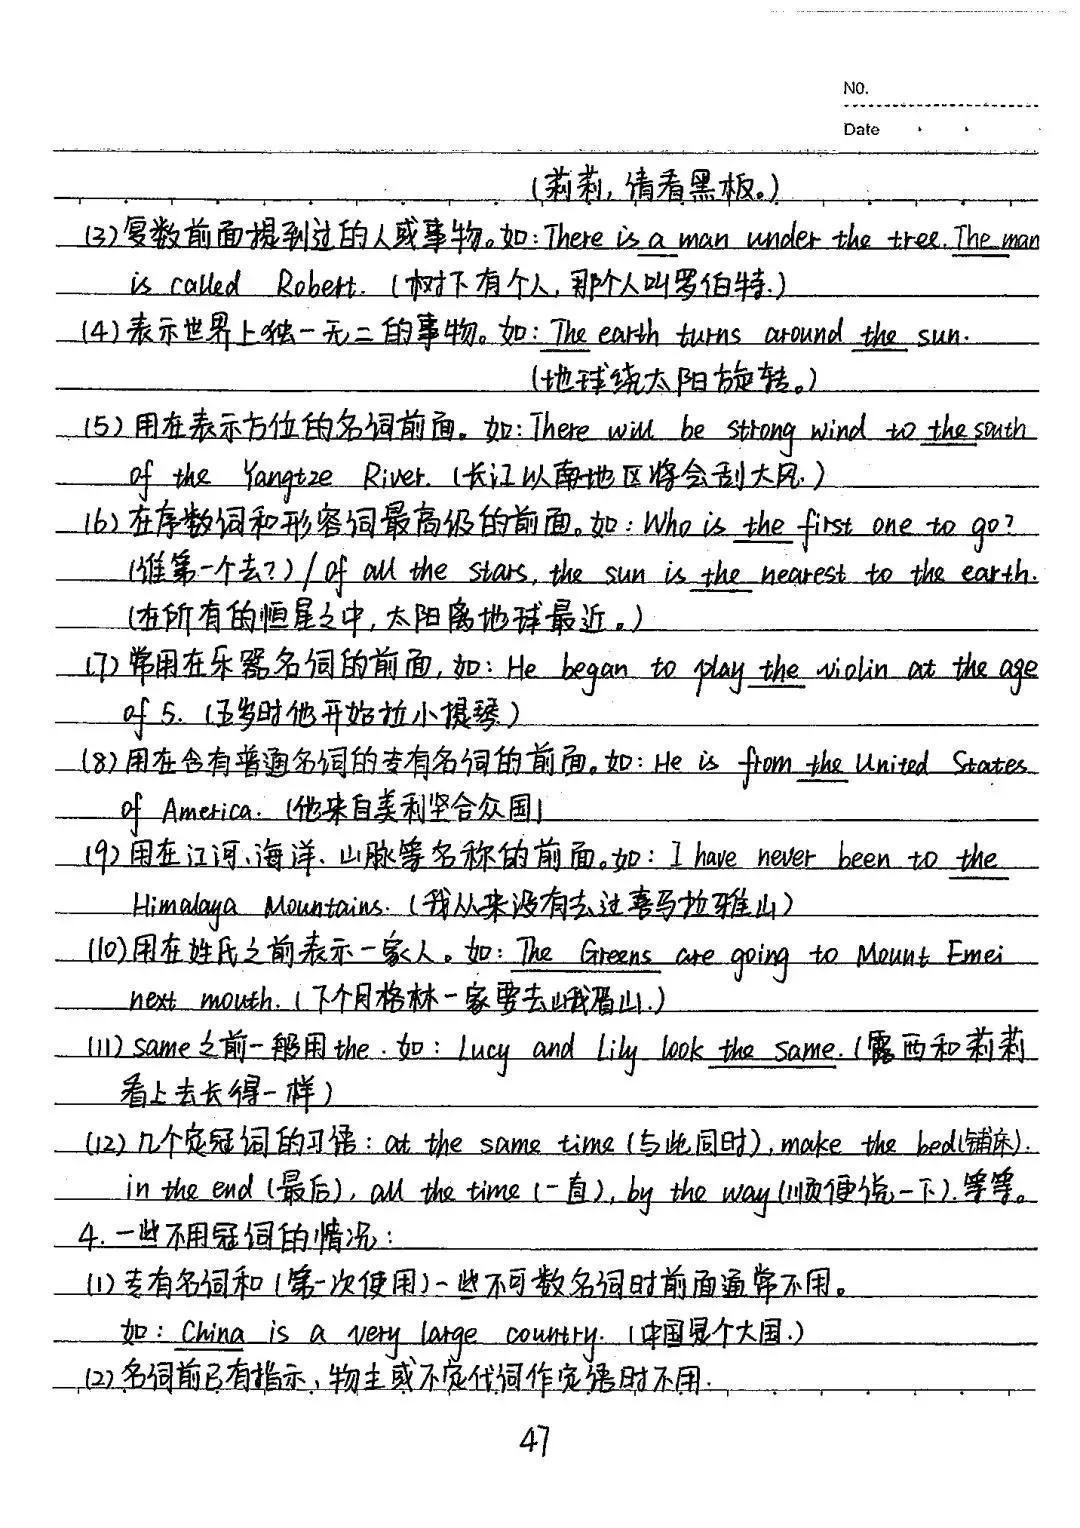 NO.
Date
(莉莉,请看黑板。)
(3)复数前面提到过的人或事物。如:There is a man under the tree. The man
is called Robert. (树下有个人,那个人叫罗伯特.)
(4)表示世界上独一无二的事物。如:The earth turns around the sun.
(地球绕太阳旋转。)
(5)用在表示方位的名词前面。如:There will be strong wind to the south
of the Yangtze River. (长江以南地区将会刮大风.)
(6)在序数词和形容词最高级的前面。如:Who is the first one to go?
(谁第一个去?)/of all the stars, the sun is the nearest to the earth.
(在所有的恒星之中,太阳离地球最近。)
(7)常用在乐器名词的前面,如:He began to play the violin at the age
of 5. (五岁时他开始拉小提琴)
(8)用在含有普通名词的专有名词的前面。如:He is from the United States
of America. (他来自美利坚合众国)
(9)用在江河、海洋、山脉等名称的前面。如:I have never been to the
Himalaya Mountains. (我从来没有去过喜马拉雅山)
(10)用在姓氏之前表示一家人。如:The Greens are going to Mount Emei
next mouth. (下个月格林一家要去峨眉山.)
(11) same之前一般用the.如:Lucy and Lily look the same. (露西和莉莉
看上去长得一样)
(12)几个定冠词的习语:at the same time (与此同时), make the bed(铺床).
in the end (最后), all the time (一直), by the way (顺便说一下).等等。
4.一些不用冠词的情况:
(1)专有名词和(第一次使用)一些不可数名词时前面通常不用。
如:China is a very large country. (中国是个大国.)
(2)名词前已有指示、物主或不定代词作定语时不用.
47